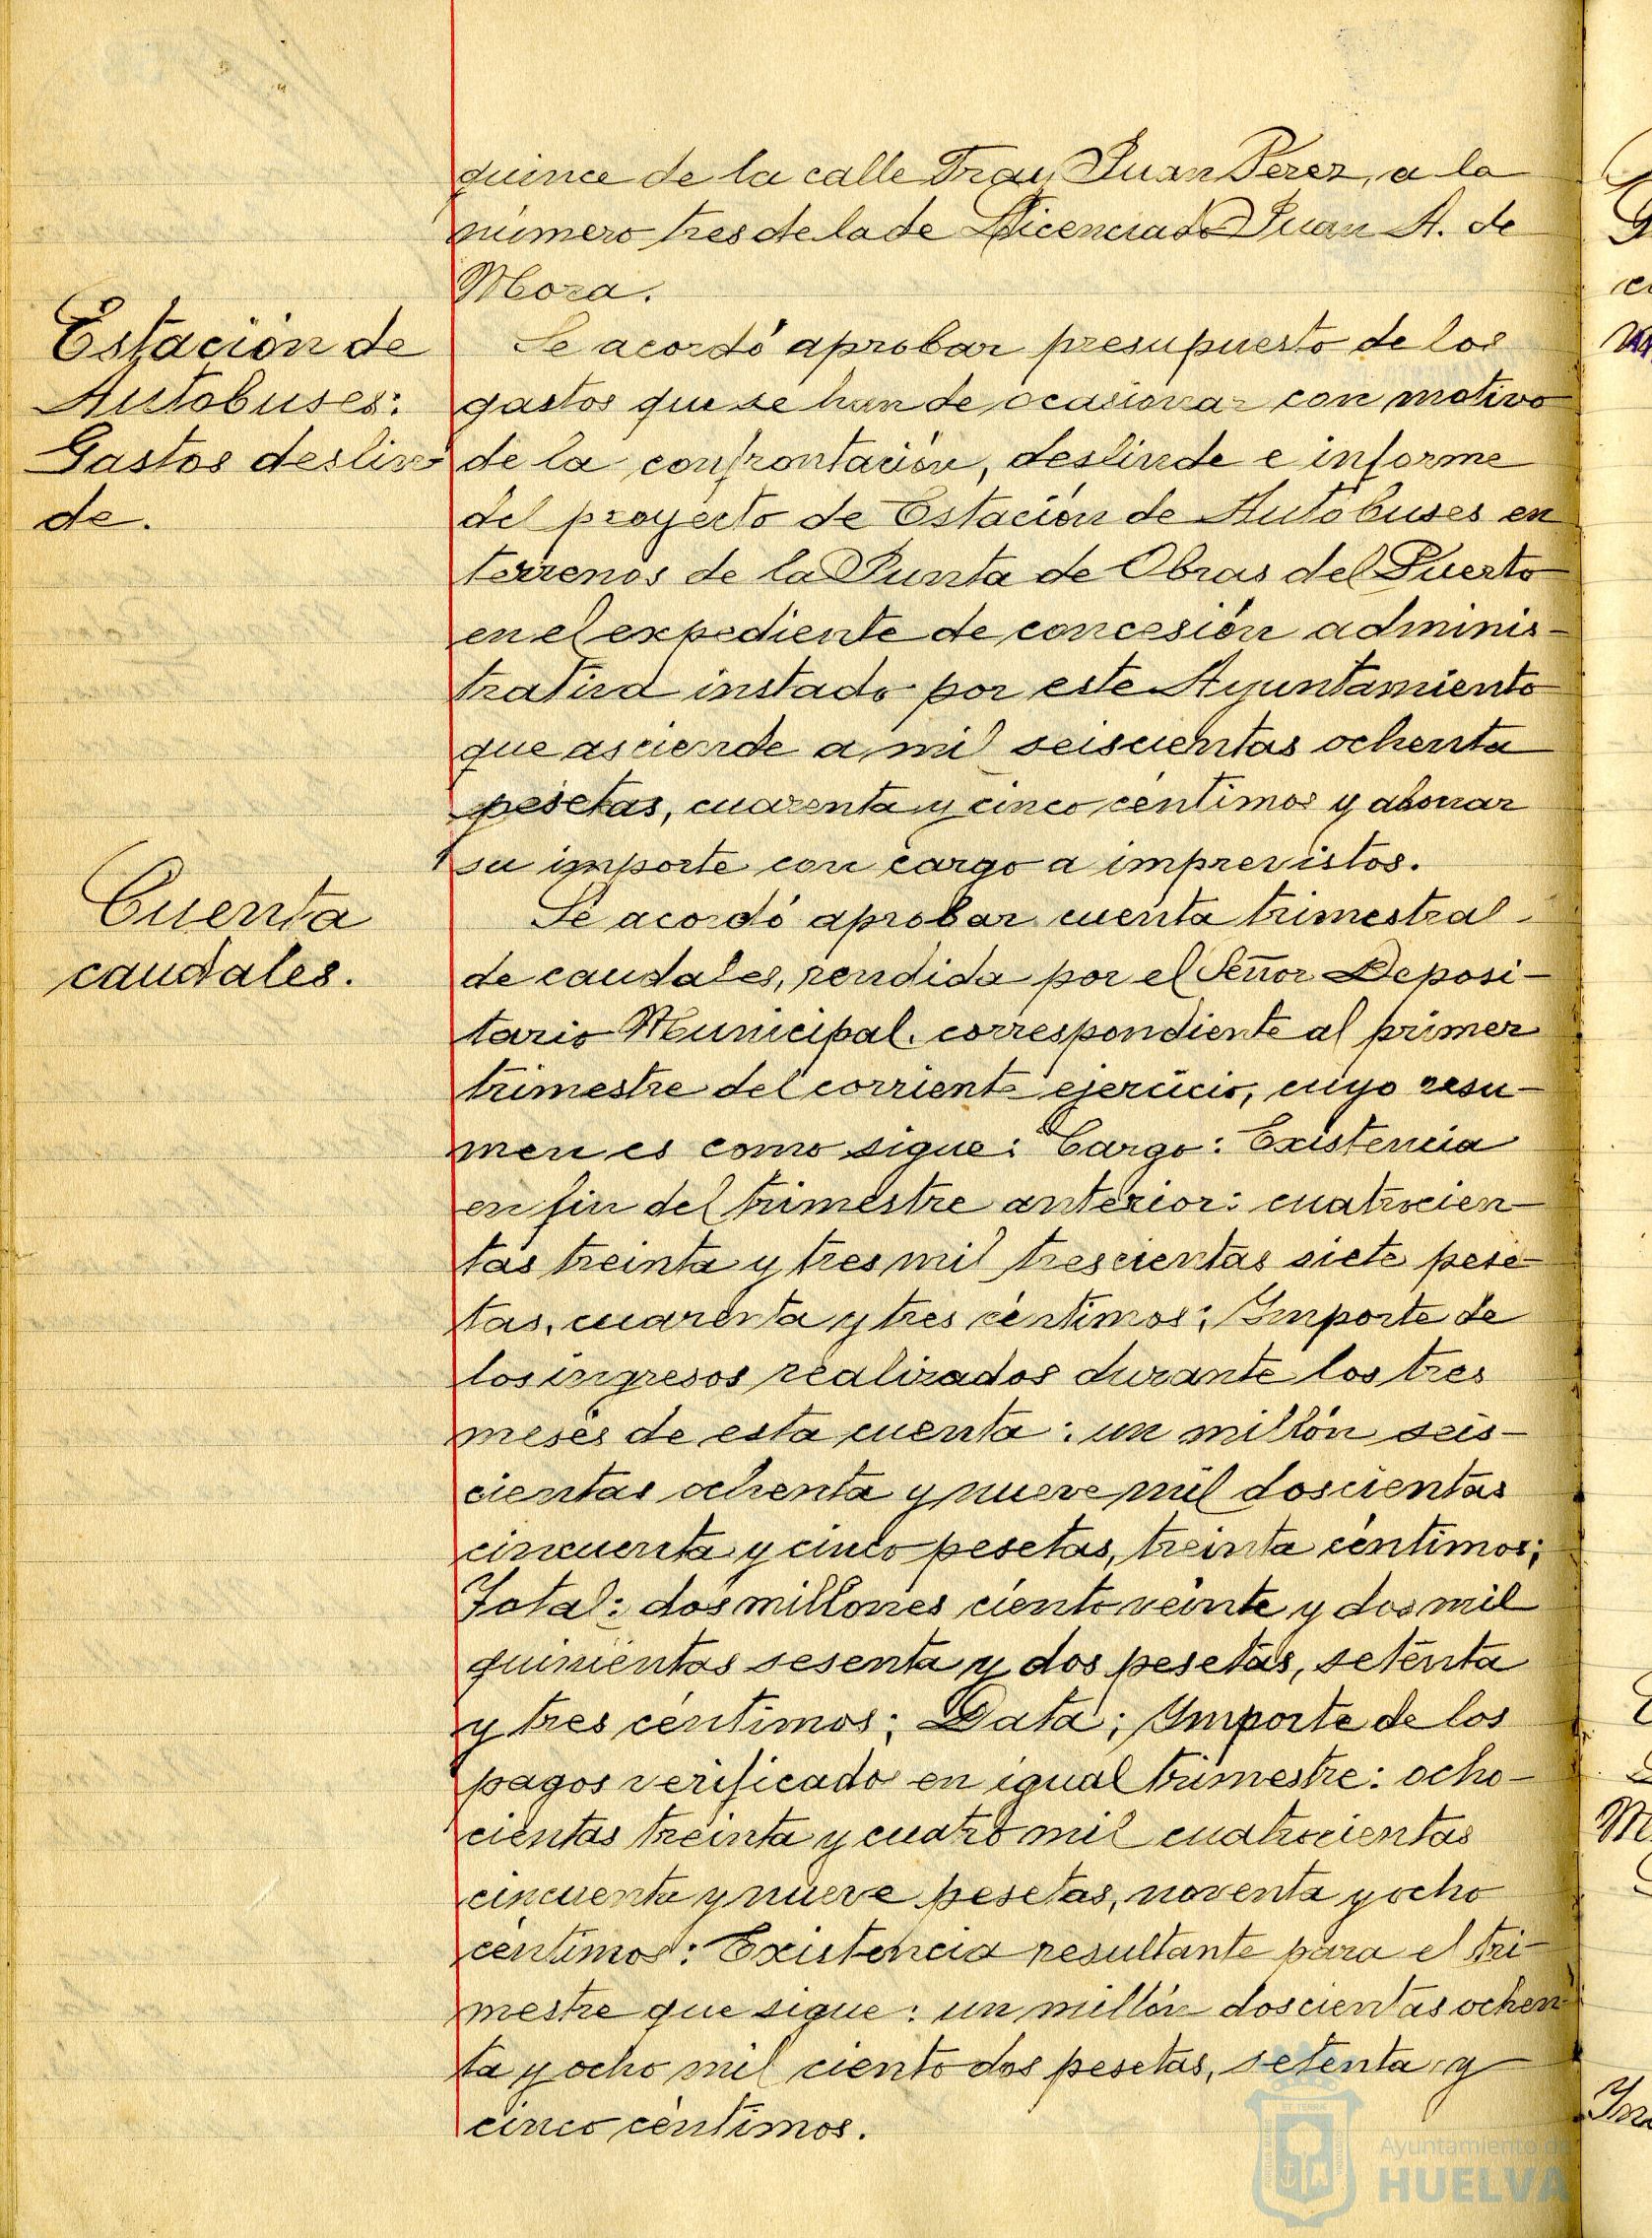 quince de la calle Fray Juan Perez, a la
número tres de la de Licenciado Juan A. de
Mora.
Estación de
Autobuses:
Gastos deslin
de.
Se acordó aprobar presupuesto de los
gastos que se han de ocasionar con motivo
de la confrontación, deslinde e informe
del proyecto de Estación de Autobuses en
terrenos de la Punta de Obras del Puerto
en el expediente de concesión adminis-
trativa instado por este Ayuntamiento
que asciende a mil seiscientas ochenta
pesetas, cuarenta y cinco céntimos y abonar
su importe con cargo a imprevistos.
Cuenta
caudales.
Se acordó aprobar cuenta trimestral
de caudales, rendida por el Señor Deposi-
tario Municipal. correspondiente al primer
trimestre del corriente ejercicio, cuyo resu-
men es como sigue: Cargo: Existencia
en fin del trimestre anterior: cuatrocien-
tas treinta y tres mil trescientas siete pese-
tas, cuarenta y tres céntimos; Importe de
los ingresos realizados durante los tres
meses de esta cuenta: un millón seis-
cientas ochenta y nueve mil doscientas
cincuenta y cinco pesetas, treinta céntimos;
Total: dos millones ciento veinte y dos mil
quinientas sesenta y dos pesetas, setenta
y tres céntimos; Data; Importe de los
pagos verificado en igual trimestre: ocho-
cientas treinta y cuatro mil cuatrocientas
cincuenta y nueve pesetas, noventa y ocho
céntimos: Existencia resultante para el tri-
mestre que sigue: un millón doscientas ochen-
ta y ocho mil ciento dos pesetas, setenta y
cinco céntimos.
Ayuntamiento de
HUELVA